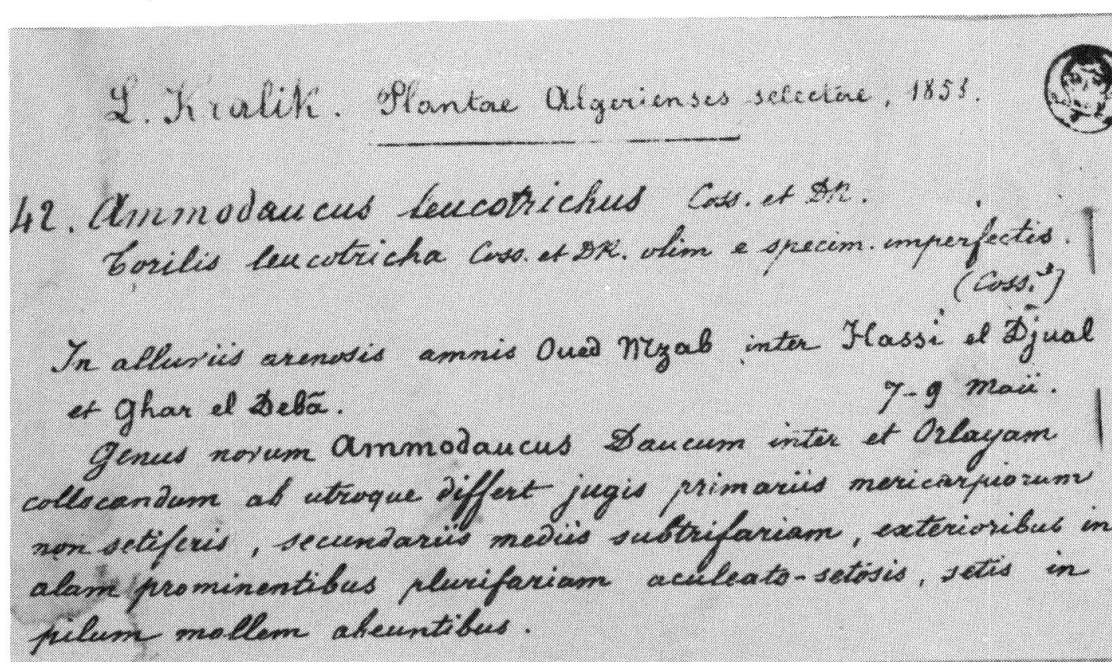 L. Kralik. Plantae Algerienses selectae, 1858.
42. Ammodaucus leucotrichus Coss. et DR.
Torilis leucotricha Coss. et DR. olim e specim. imperfectis.
(Coss.!)
In alluviis arenosis amnis Oued Mzab inter Hassi el Djual
et Ghar el Debā. 7-9 Maii.
Genus novum Ammodaucus Daucum inter et Orlayam
collocandum ab utroque differt jugis primariis mericarpiorum
non setiferis, secundariis mediis subtrifariam, exterioribus in
alam prominentibus plurifariam aculeato-setosis, setis in
pilum mollem abeuntibus.